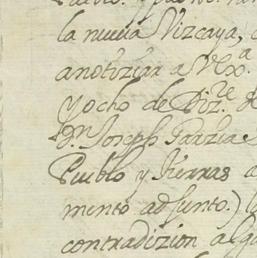 la nueva Vizcaya,
anotiziar a Vxª
y ocho de Diz.re
Dn Joseph Garzia
Pueblo y tierras a
mento adjunto.)
contradizion alg